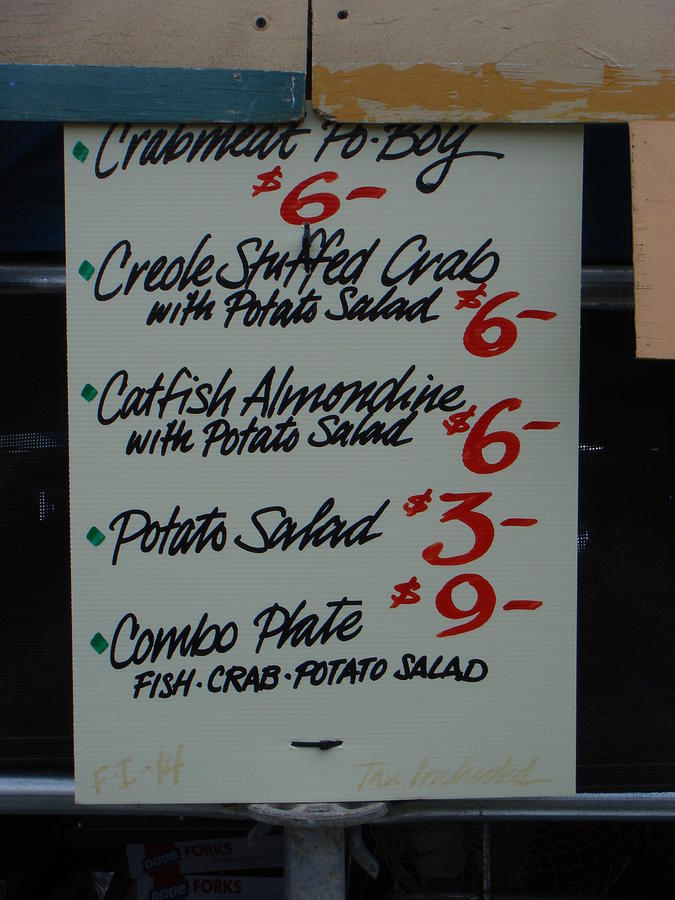 Crabmeat Po-Boy
$6-
Creole Stuffed Crab
with Potato Salad $6-
Catfish Almondine
with Potato Salad $6-
Potato Salad $3-
Combo Plate $9-
FISH · CRAB · POTATO SALAD
F-I-14 Tax Included
DIXIE FORKS
DIXIE FORKS